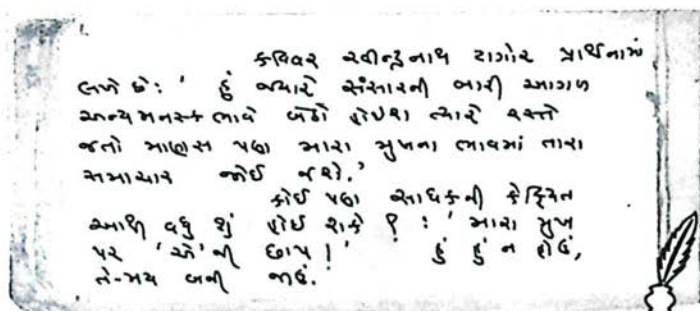 કવિવર રવીન્દ્રનાથ ટાગોર પ્રાર્થનામાં
લખે છે: ' હું જ્યારે સંસારની બારી આગળ
અન્યમનસ્ક ભાવે બેઠો હોઈશ ત્યારે રસ્તે
જતો માણસ પણ મારા મુખના ભાવમાં તારા
સમાચાર જોઈ જશે.'
કોઈ પણ સાધકની કેફિયત
આથી વધુ શું હોઈ શકે ? : ' મારા મુખ
પર 'એ'ની છાપ ! ' હું હું ન હોઉં,
તે-મય બની જાઉં.